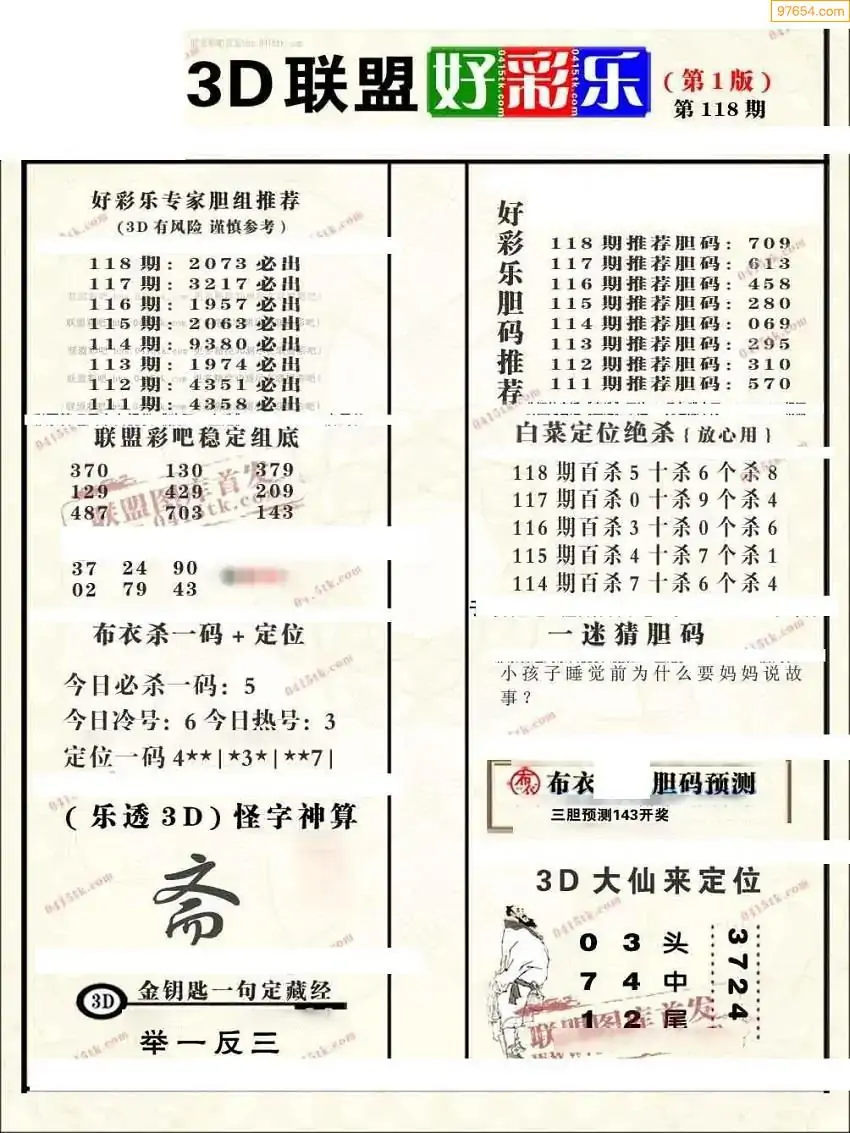 97654.com
3D联盟好彩乐
(第1版)
第118期
好彩乐专家胆组推荐
(3D有风险 谨慎参考)
118期: 2073必出
117期: 3217必出
116期: 1957必出
115期: 2063必出
114期: 9380必出
113期: 1974必出
112期: 4351必出
111期: 4358必出
联盟彩吧稳定组底
370 130 379
129 429 209
487 703 143
联盟图库首发
0415tk.com
37 24 90
02 79 43
布衣杀一码+定位
今日必杀一码: 5
今日冷号: 6 今日热号: 3
定位一码 4**|*3*|**7|
(乐透3D)怪字神算
斋
3D 金钥匙一句定藏经
举一反三
好彩乐胆码推荐
118期推荐胆码: 709
117期推荐胆码: 613
116期推荐胆码: 458
115期推荐胆码: 280
114期推荐胆码: 069
113期推荐胆码: 295
112期推荐胆码: 310
111期推荐胆码: 570
白菜定位绝杀{放心用}
118期百杀5十杀6个杀8
117期百杀0十杀9个杀4
116期百杀3十杀0个杀6
115期百杀4十杀7个杀1
114期百杀7十杀6个杀4
一迷猜胆码
小孩子睡觉前为什么要妈妈说故
事?
布衣 胆码预测
三胆预测143开奖
3D大仙来定位
0 3 头
7 4 中
1 2 尾
3724
联盟图库首发